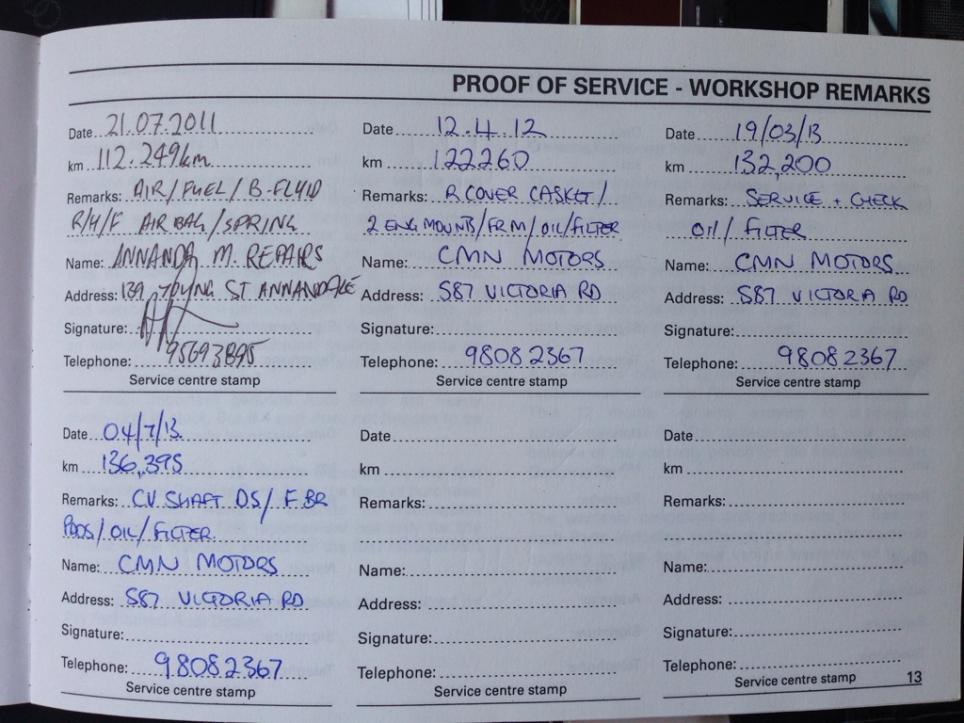 PROOF OF SERVICE - WORKSHOP REMARKS
Date 21.07.2011
km 112.249km
Remarks: AIR/FUEL/B-FLUID
R/H/F AIR BAG/SPRING
Name: ANNANDA M. REPAIRS
Address: 139 YOUNG ST ANNANDALE
Signature:
Telephone: 95693895
Service centre stamp
Date 12.4.12
km 122260
Remarks: R COVER CASKET/
2 ENG MOUNTS/FRM/OIL/FILTER
Name: CMN MOTORS
Address: 587 VICTORIA RD
Signature:
Telephone: 98082367
Service centre stamp
Date 19/03/13
km 132,200
Remarks: SERVICE + CHECK
OIL/FILTER
Name: CMN MOTORS
Address: 587 VICTORIA RD
Signature:
Telephone: 98082367
Service centre stamp
Date 04/7/13
km 136,395
Remarks: CV SHAFT DS/F.BR
PADS/OIL/FILTER
Name: CMN MOTORS
Address: 587 VICTORIA RD
Signature:
Telephone: 98082367
Service centre stamp
Date
km
Remarks:
Name:
Address:
Signature:
Telephone:
Service centre stamp
Date
km
Remarks:
Name:
Address:
Signature:
Telephone:
Service centre stamp
13